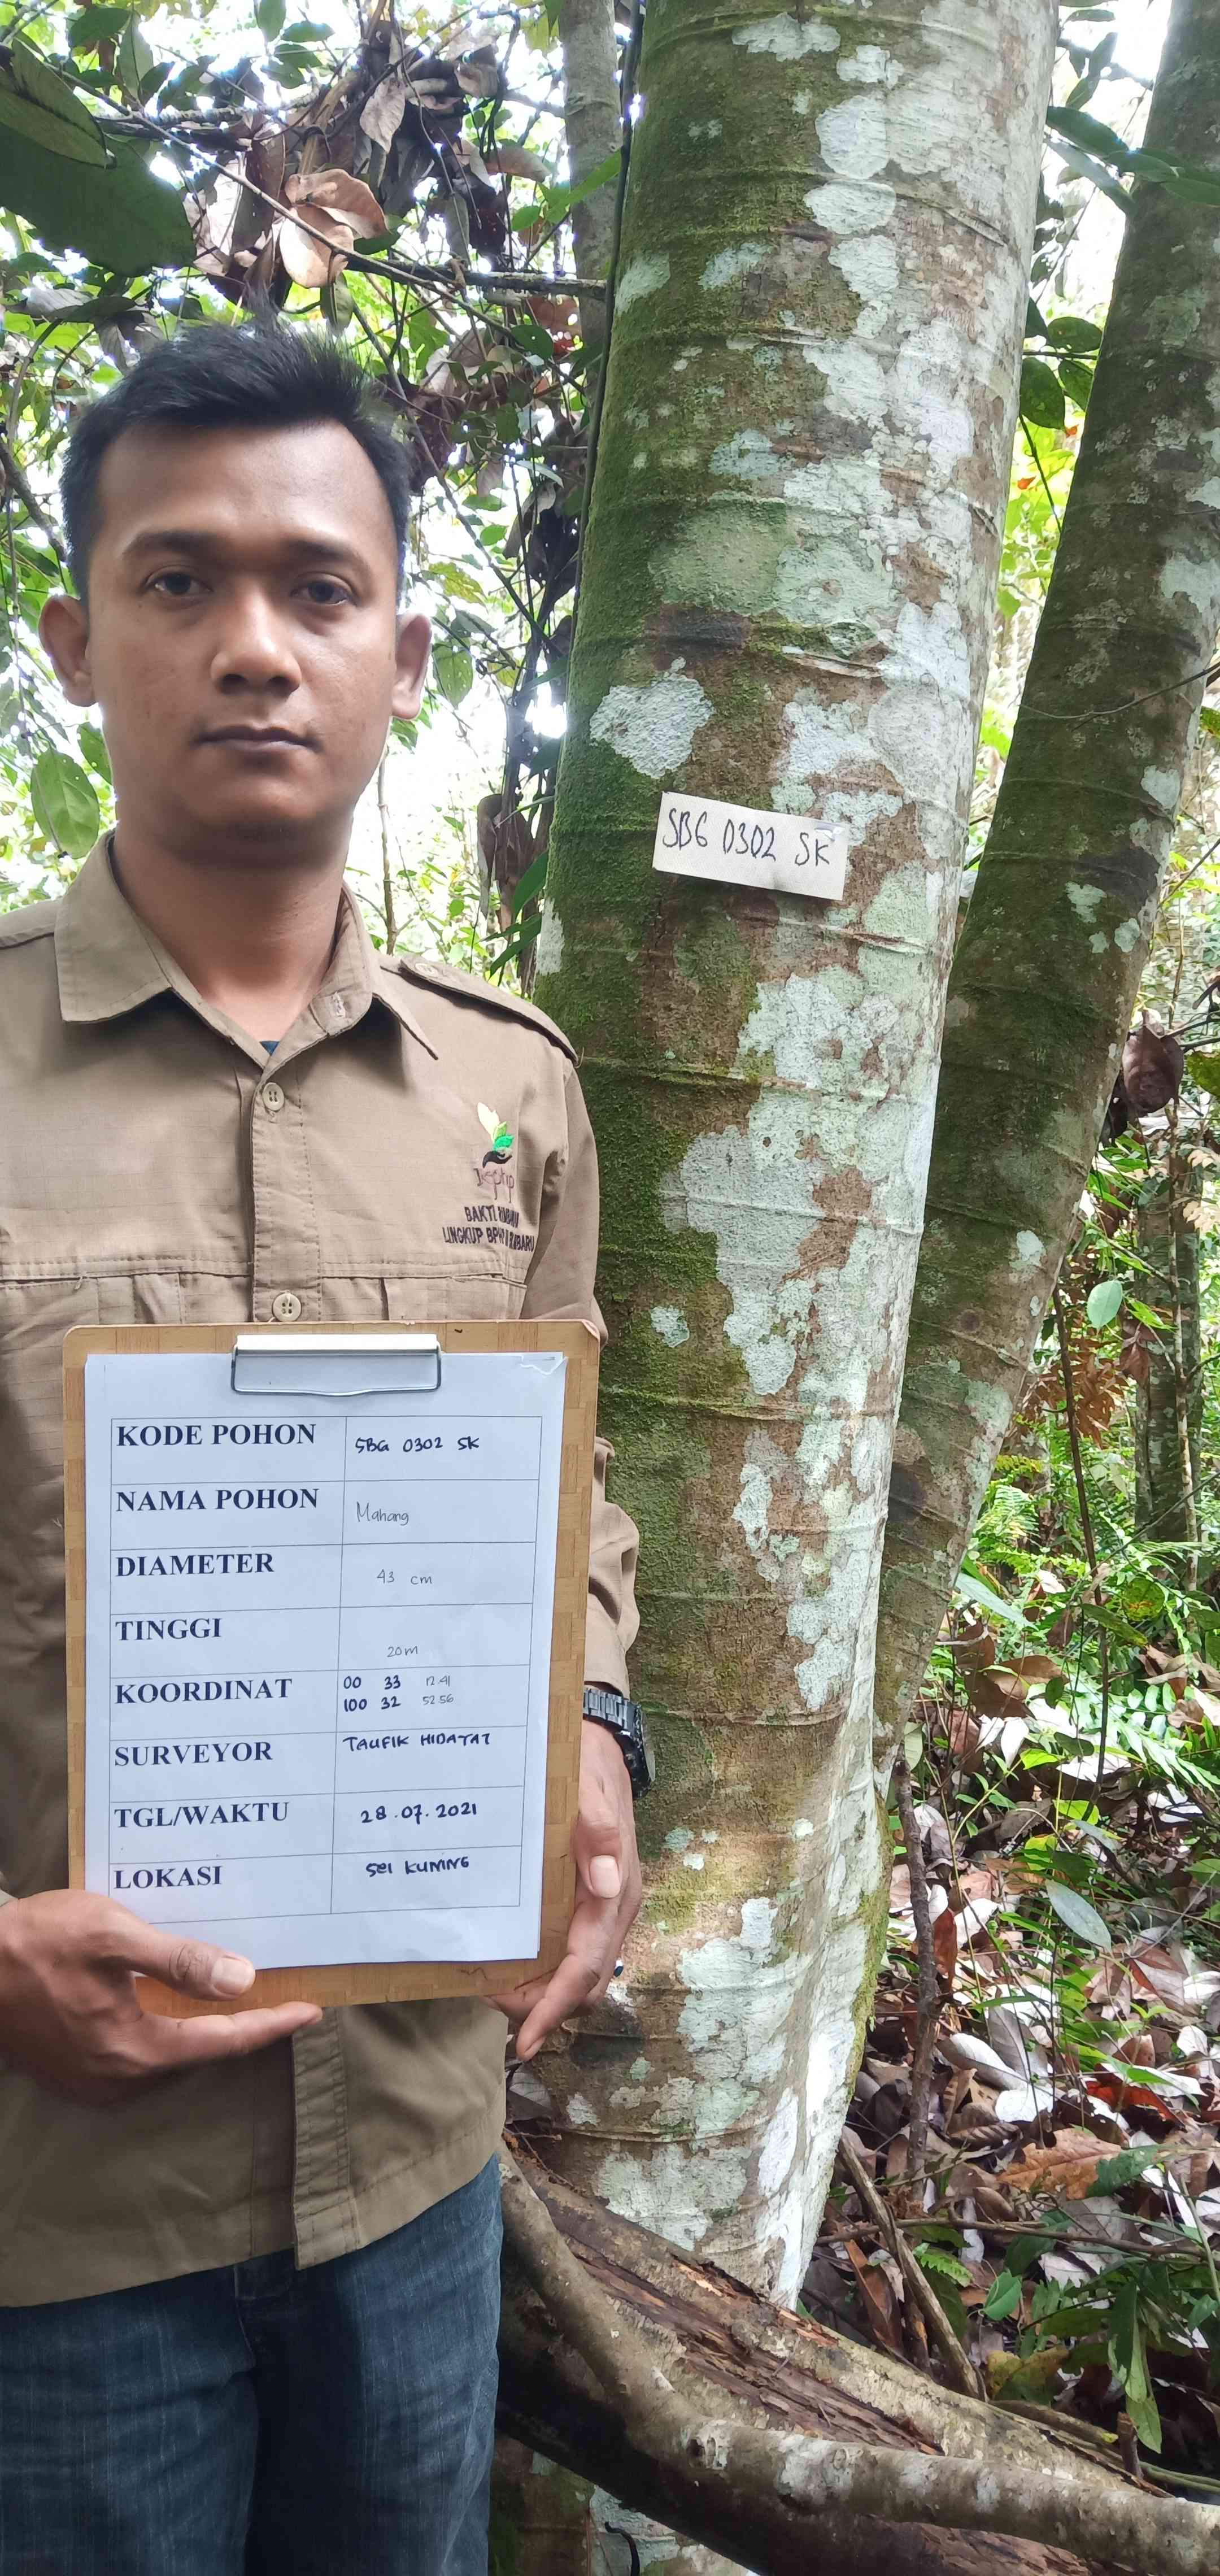 SBG 0302 SK
BAKTI
LINGKUP
KODE POHON SBG 0302 SK
NAMA POHON Mahang
DIAMETER 43 cm
TINGGI 20 m
KOORDINAT 00 33 12.41
100 32 52.56
SURVEYOR TAUFIK HIDAYAT
TGL/WAKTU 28.07.2021
LOKASI SEI KUNING